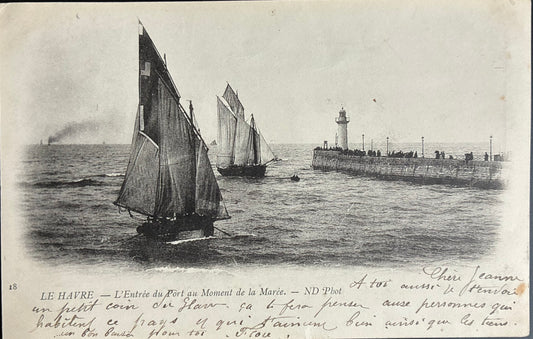 18
LE HAVRE — L'Entrée du Port au Moment de la Marée. — ND Phot
Chère Jeanne
A toi aussi je t'envoie
un petit coin du Havre ça te fera penser aux personnes qui
habitent ce pays et qui t'aiment bien ainsi que les tiens.
un bon baiser pour toi